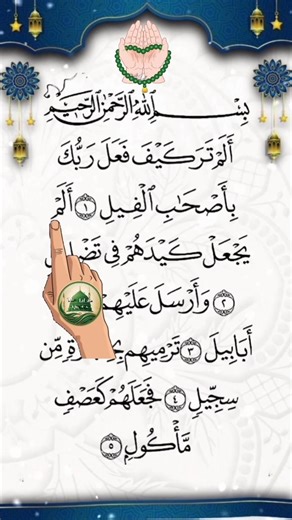 بِسْمِ اللهِ الرَّحْمٰنِ الرَّحِيْمِ
أَلَمْ تَرَ كَيْفَ فَعَلَ رَبُّكَ
بِأَصْحَابِ الْفِيلِ ۝١ أَلَمْ
يَجْعَلْ كَيْدَهُمْ فِي
۝٢ وَأَرْسَلَ
أَبَابِيلَ ۝٣ تَرْمِيهِم مِّن
سِجِّيلٍ ۝٤ فَجَعَلَهُمْ كَعَصْفٍ
مَّأْكُولٍ ۝٥